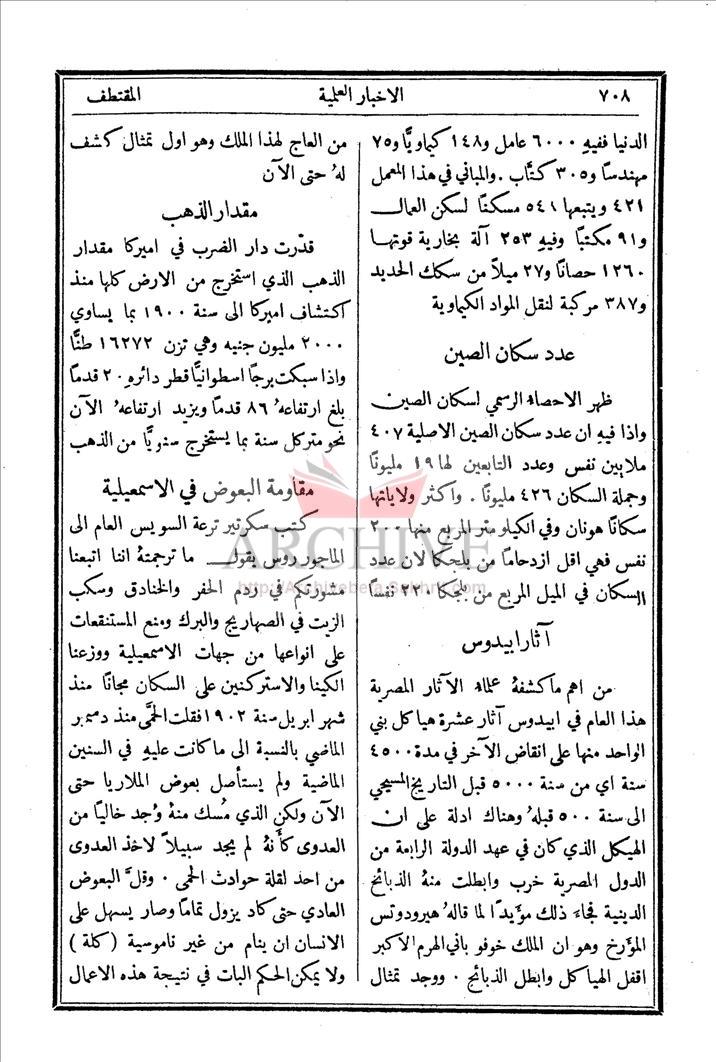 ٧٠٨
الاخبار العلمية
المقتطف
الدنيا ففيهِ ٦٠٠٠ عامل و١٤٨ كيماويًّا و٧٥
مهندسًا و٣٠٥ كتَّاب . والمباني في هذا المعمل
٤٢١ ويتبعها ٥٤١ مسكنًا لسكن العمال
و٩١ مكتبًا وفيهِ ٢٥٣ آلة بخارية قوتها
١٢٦٠ حصانًا و٢٧ ميلاً من سكك الحديد
و٣٨٧ مركبة لنقل المواد الكيماوية
عدد سكان الصين
ظهر الاحصاء الرسمي لسكان الصين
واذا فيهِ ان عدد سكان الصين الاصلية ٤٠٧
ملايين نفس وعدد التابعين لها ١٩ مليونًا
وجملة السكان ٤٢٦ مليونًا . واكثر ولاياتها
سكانًا هونان وفي الكيلو متر المربع منها ٢٠٠
نفس فهي اقل ازدحامًا من بلجكا لان عدد
السكان في الميل المربع من بلجكا ٢٢٠ نفسًا
آثار ابيدوس
من اهم ما كشفهُ علماء الآثار المصرية
هذا العام في ابيدوس آثار عشرة هياكل بني
الواحد منها على انقاض الآخر في مدة ٤٥٠٠
سنة اي من سنة ٥٠٠٠ قبل التاريخ المسيحي
الى سنة ٥٠٠ قبلهُ وهناك ادلة على ان
الهيكل الذي كان في عهد الدولة الرابعة من
الدول المصرية خرب وابطلت منهُ الذبائح
الدينية فجاء ذلك مؤيدًا لما قالهُ هيرودوتس
المؤرخ وهو ان الملك خوفو باني الهرم الاكبر
اقفل الهياكل وابطل الذبائح . ووجد تمثال
من العاج لهذا الملك وهو اول تمثال كشف
لهُ حتى الآن
مقدار الذهب
قدَّرت دار الضرب في اميركا مقدار
الذهب الذي استخرج من الارض كلها منذ
اكتشاف اميركا الى سنة ١٩٠٠ بما يساوي
٢٠٠٠ مليون جنيه وهي تزن ١٦٢٧٢ طنًّا
واذا سبكت برجًا اسطوانيًّا قطر دائرهِ ٢٠ قدمًا
بلغ ارتفاعهُ ٨٦ قدمًا ويزيد ارتفاعهُ الآن
نحو متر كل سنة بما يستخرج سنويًّا من الذهب
مقاومة البعوض في الاسمعيلية
كتب سكرتير ترعة السويس العام الى
الماجور روس يقول ما ترجمتهُ اننا اتبعنا
مشورتكم في ردم الحفر والخنادق وسكب
الزيت في الصهاريج والبرك ومنع المستنقعات
على انواعها من جهات الاسمعيلية ووزعنا
الكينا والاستركنين على السكان مجانًا منذ
شهر ابريل سنة ١٩٠٢ فقلت الحمَّى منذ دسمبر
الماضي بالنسبة الى ما كانت عليهِ في السنين
الماضية ولم يستأصل بعوض الملاريا حتى
الآن ولكن الذي مُسك منهُ وُجد خاليًا من
العدوى كأَنهُ لم يجد سبيلاً لاخذ العدوى
من احد لقلة حوادث الحمى . وقلَّ البعوض
العادي حتى كاد يزول تمامًا وصار يسهل على
الانسان ان ينام من غير ناموسية (كلة)
ولا يمكن الحكم البات في نتيجة هذه الاعمال
ARCHIVE
http://Archivebeta.Sakhrit.com